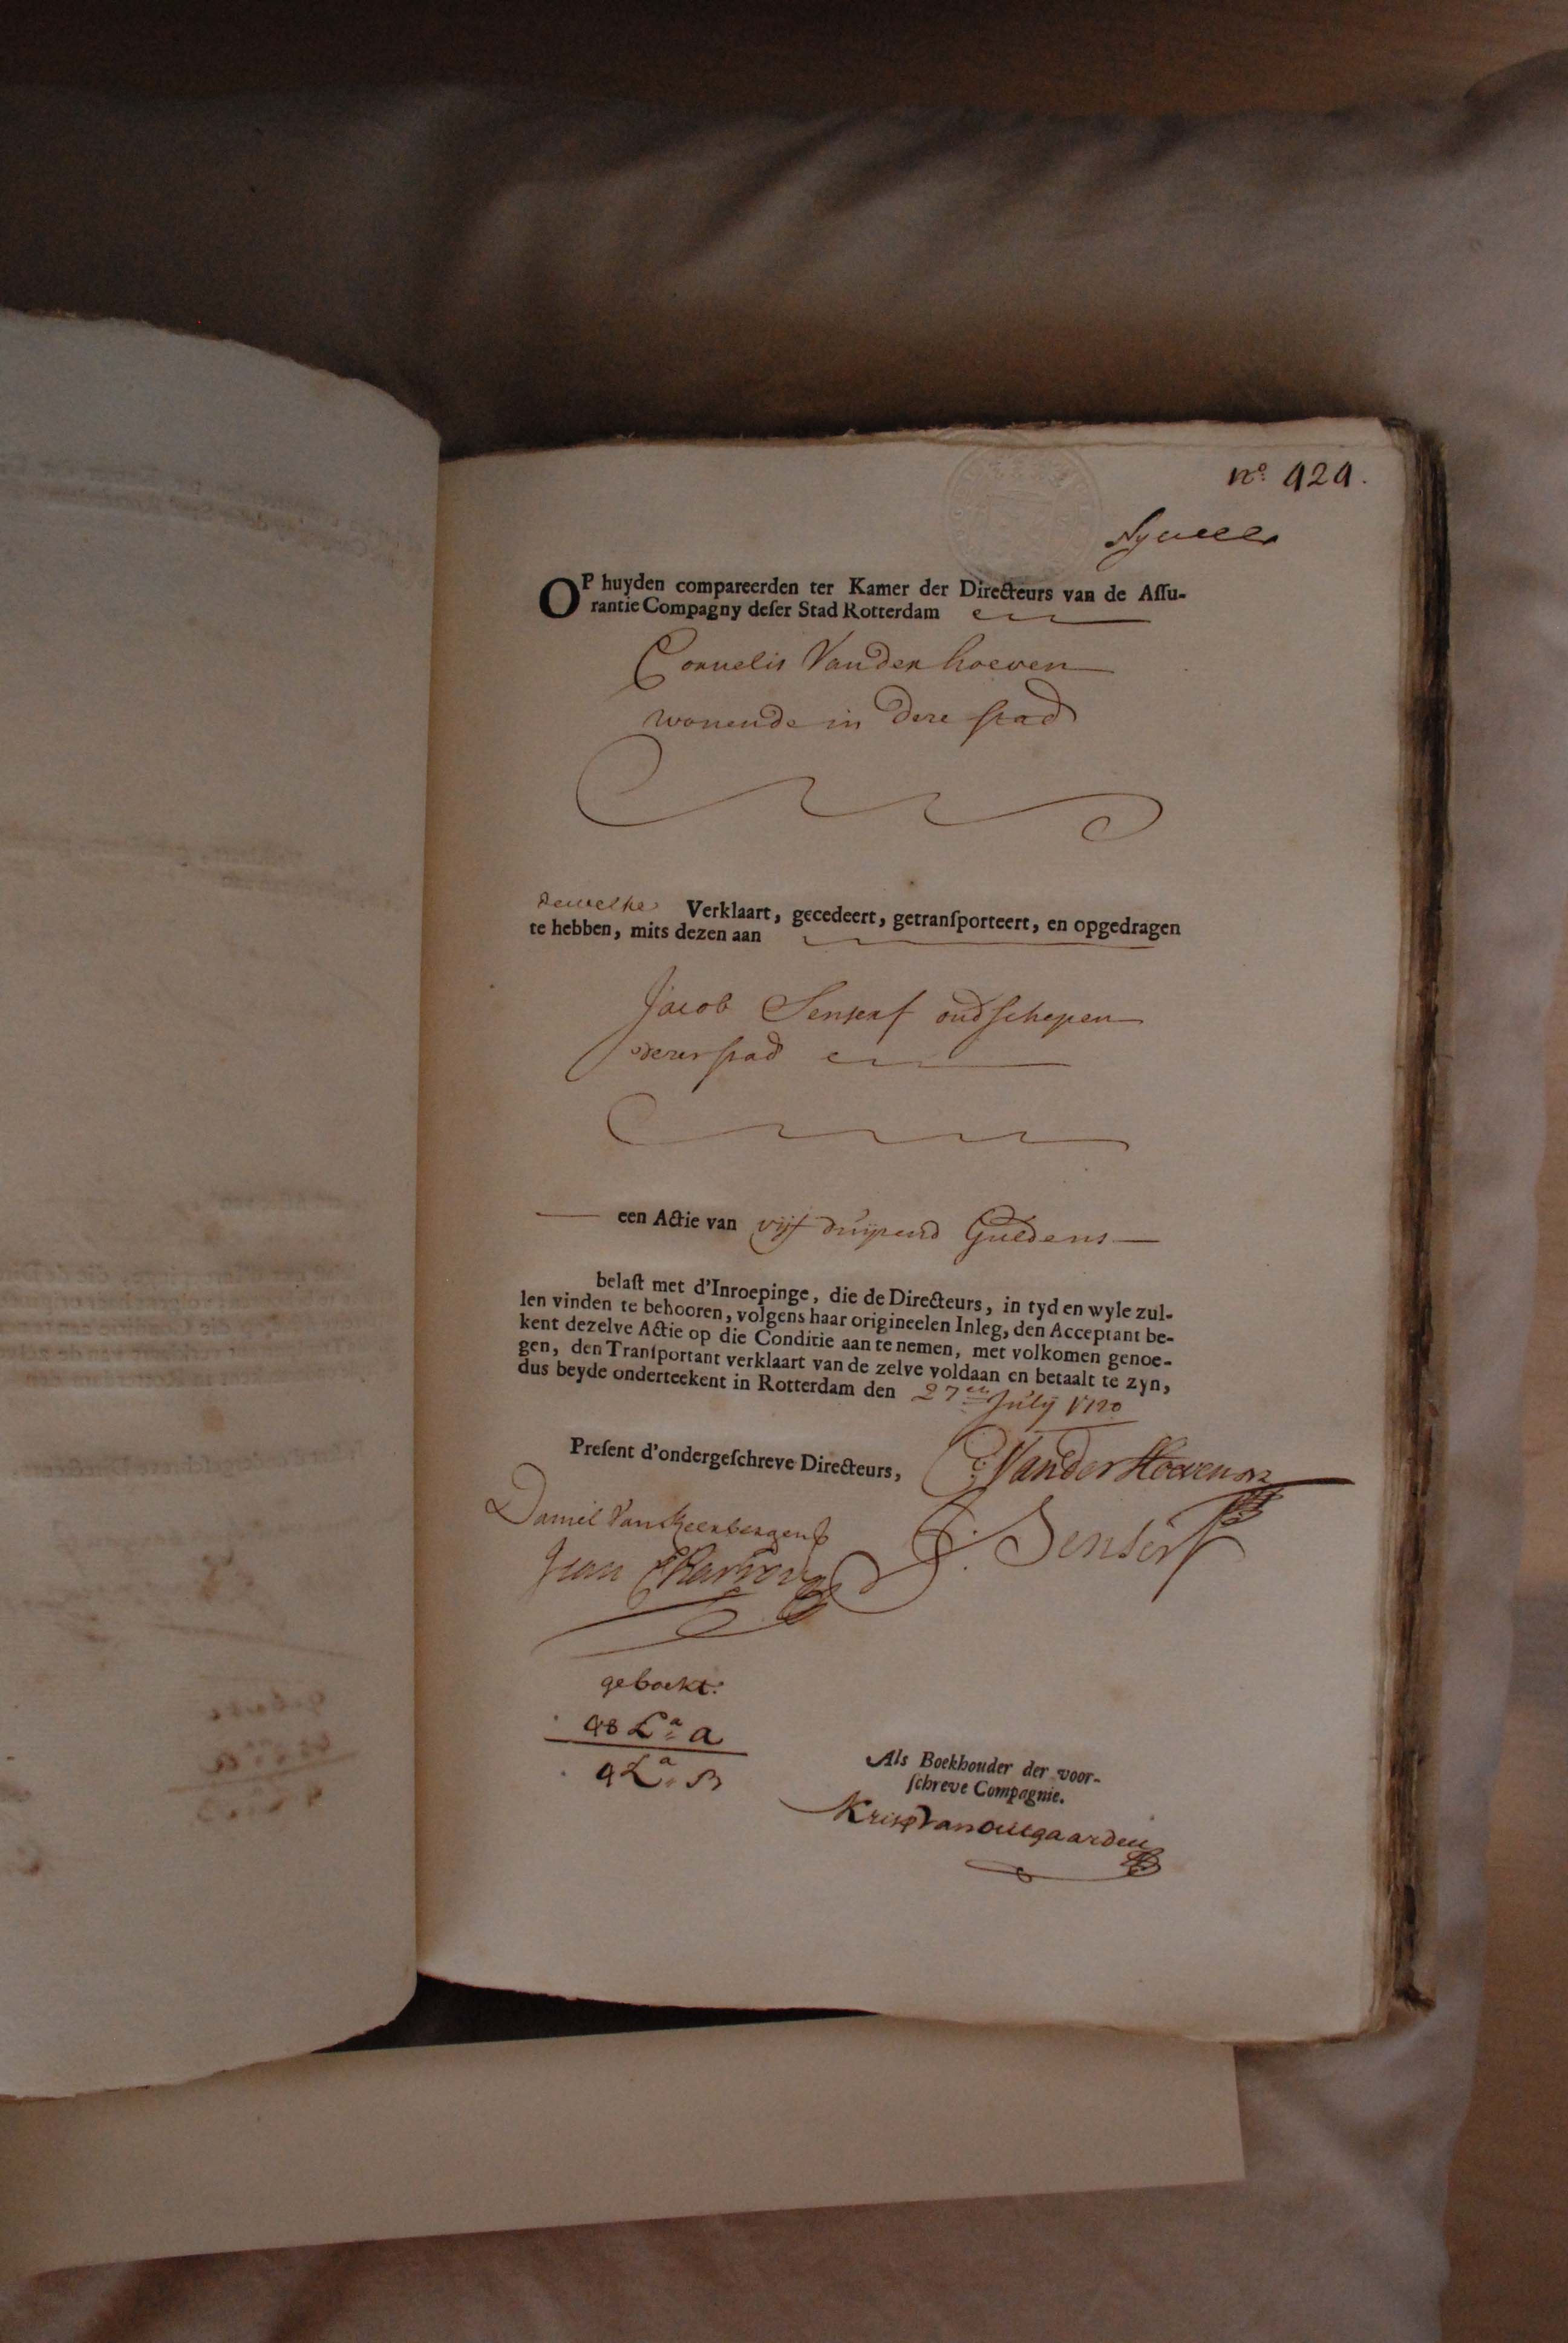 no. 424.
OP huyden compareerden ter Kamer der Directeurs van de Aſſu-
rantie Compagny deſer Stad Rotterdam
Cornelis Vander hoeven
wonende in deze stad
dewelke Verklaart, gecedeert, getranſporteert, en opgedragen
te hebben, mits dezen aan
Jacob Senserf oud schepen
dezer stad
een Actie van vijf duijsend Guldens
belaſt met d'Inroepinge, die de Directeurs, in tyd en wyle zul-
len vinden te behooren, volgens haar origineelen Inleg, den Acceptant be-
kent dezelve Actie op die Conditie aan te nemen, met volkomen genoe-
gen, den Tranſportant verklaart van de zelve voldaan en betaalt te zyn,
dus beyde onderteekent in Rotterdam den 27en July 1720
Preſent d'ondergeſchreve Directeurs, C: Vander Hoeven
Daniel Van Keerbergen
J: Senserf
Jean
geboekt:
48 La a
4 La B
Als Boekhouder der voor-
ſchreve Compagnie.
Krisp Van Outgaarden